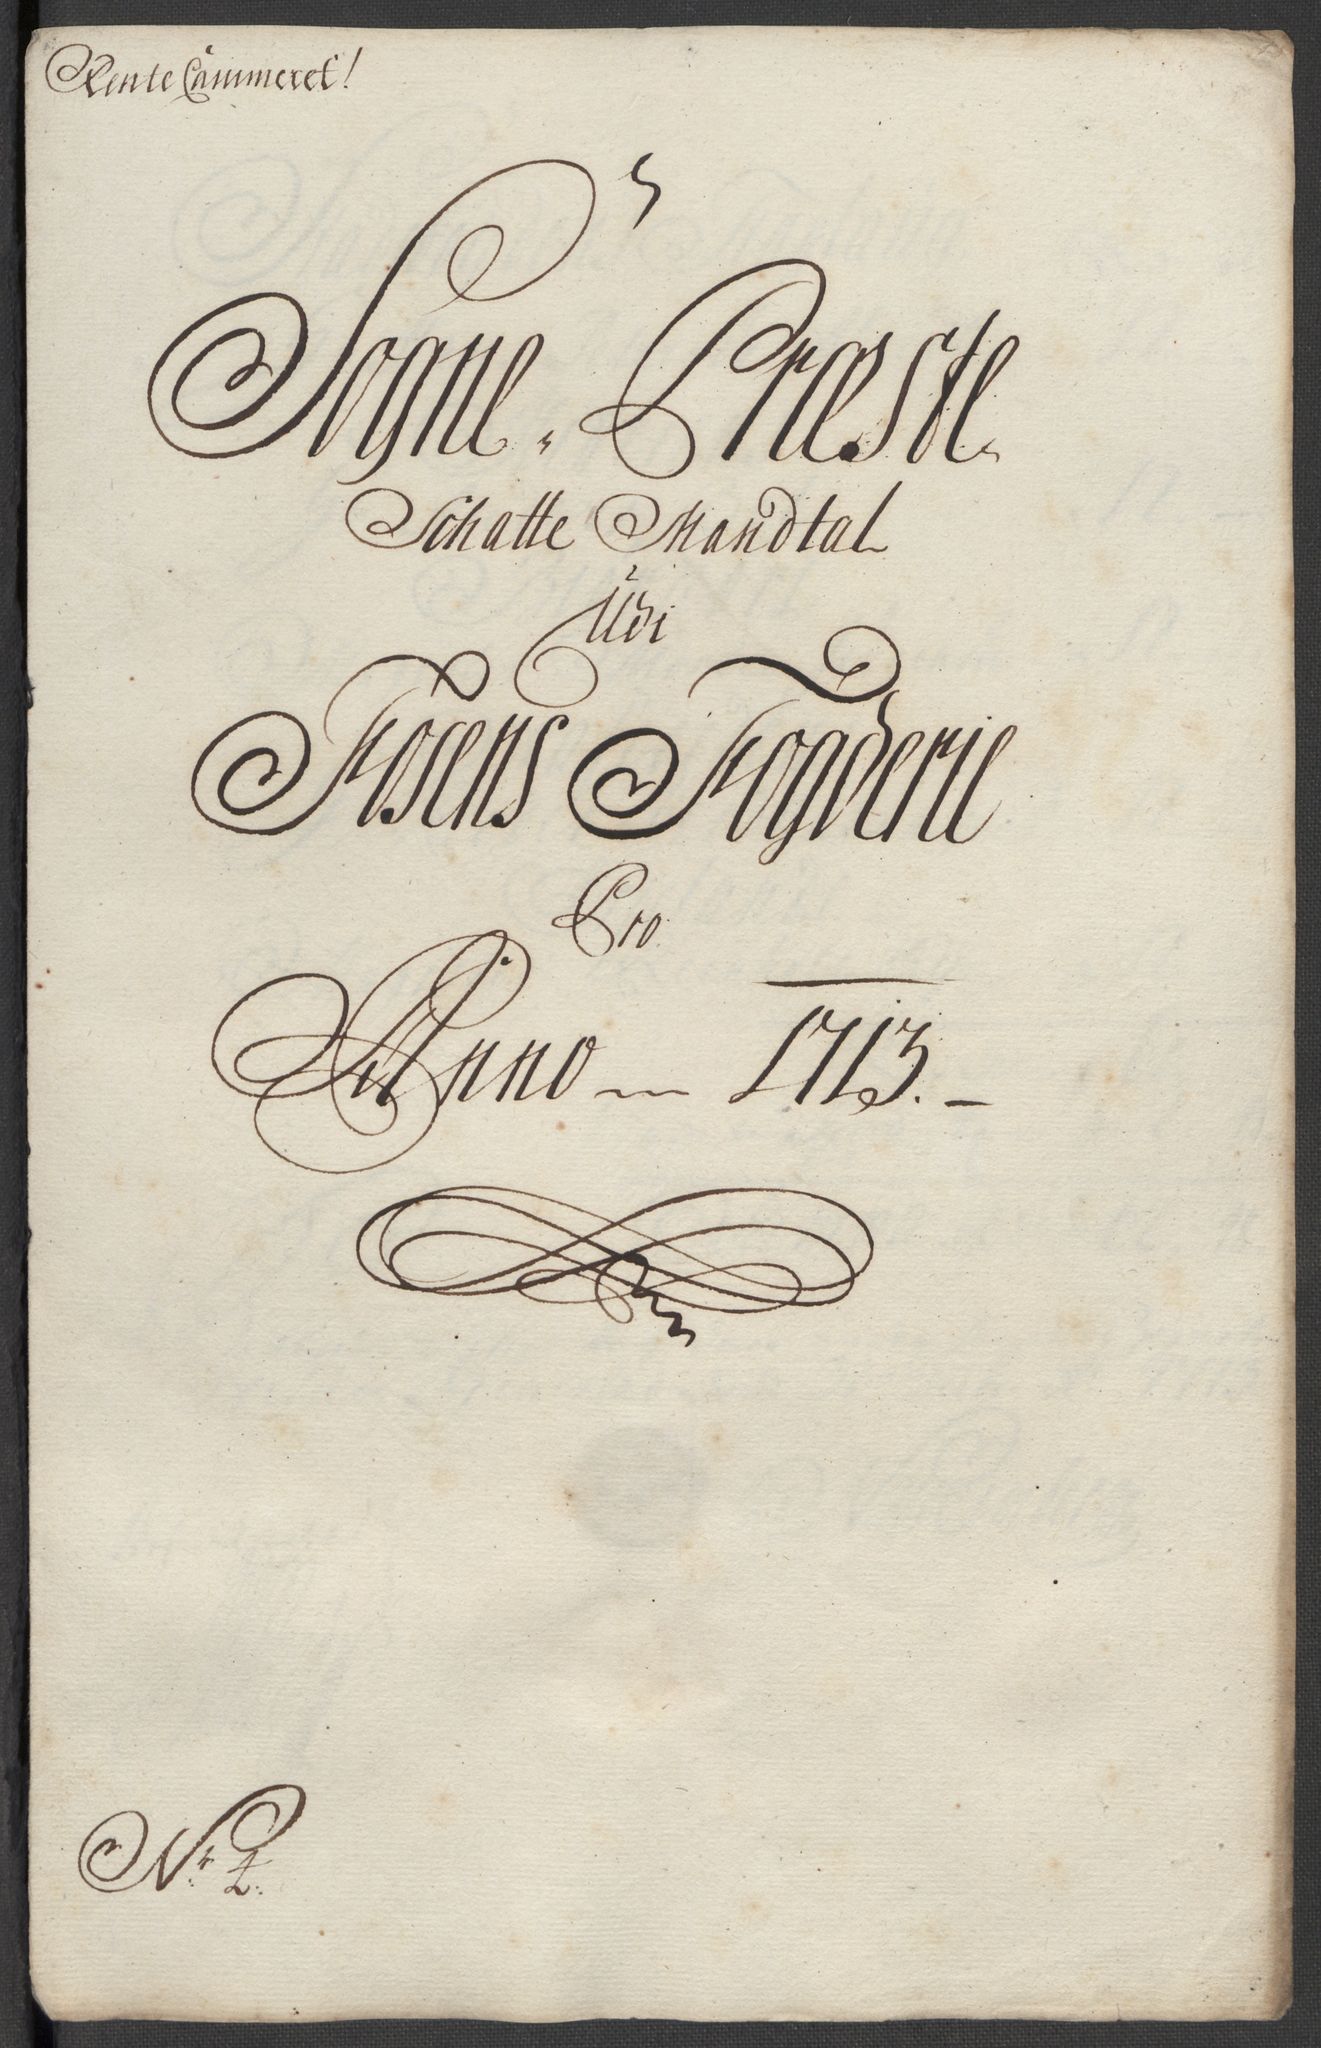 Rente Cammeret!
Sogne Præste
Schatte Mandtal
Udi
Fosens Fogderie
Pro
Anno 1713.